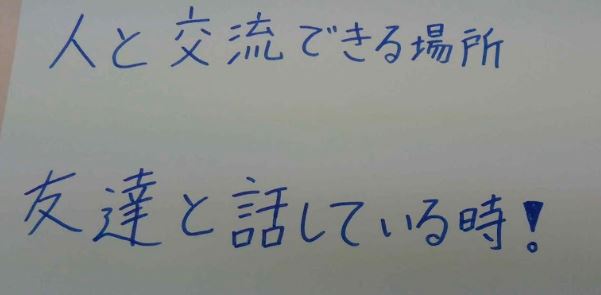 人と交流できる場所
友達と話している時!